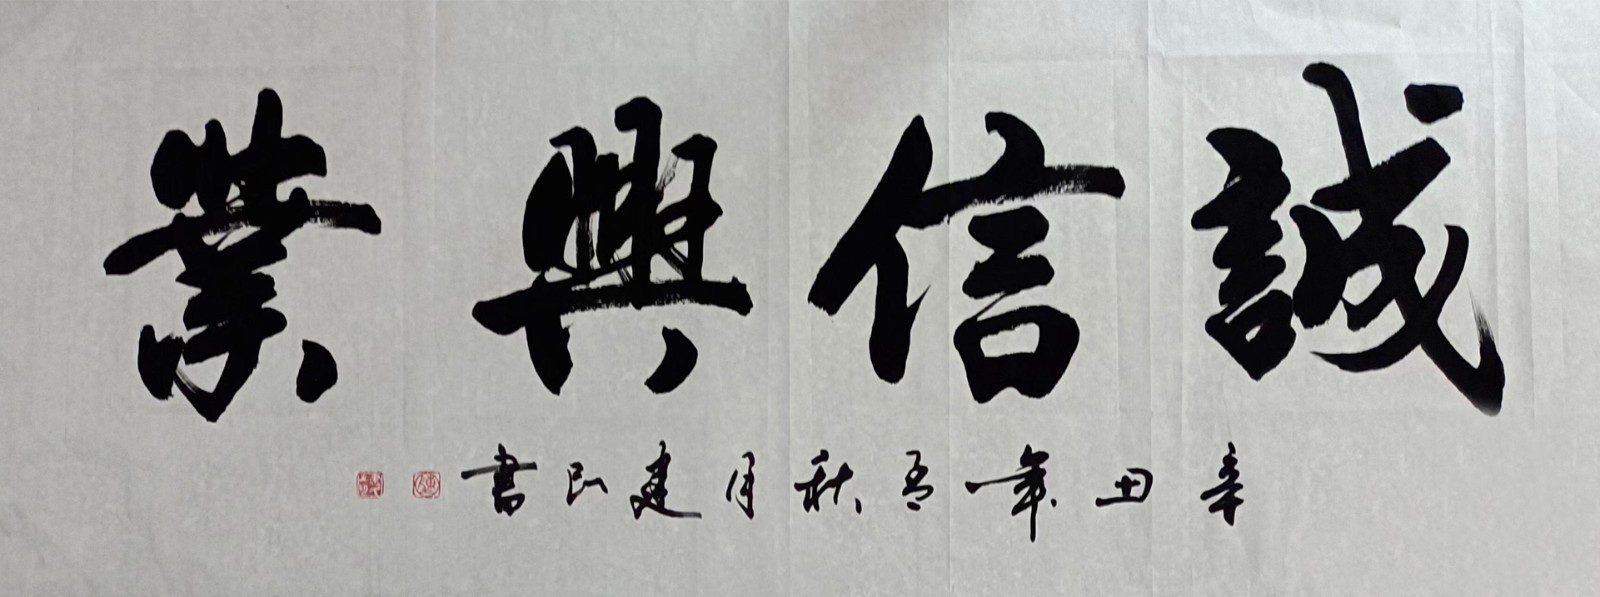 誠信興業
辛丑年孟秋月建民書